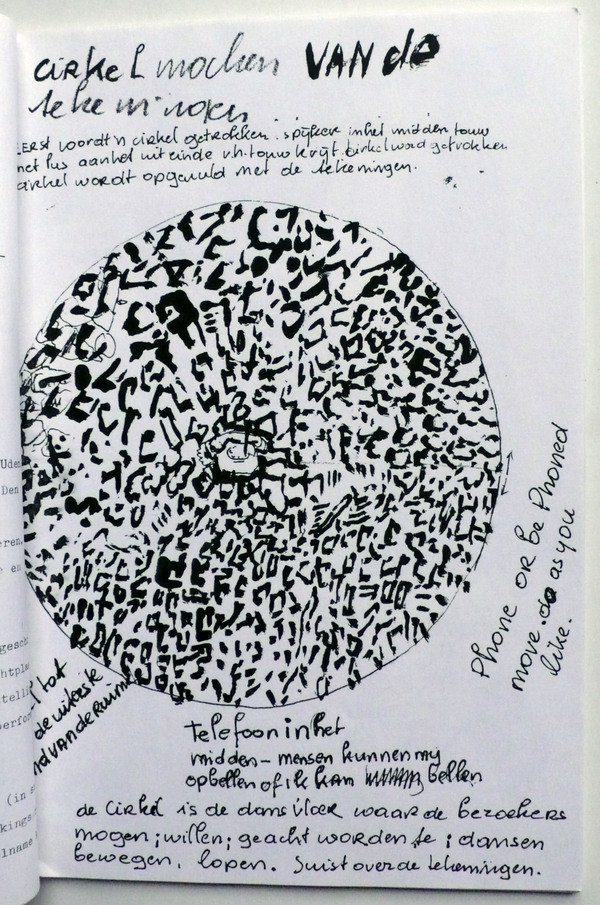 cirkel maken VAN de
tekeningen.
EERST woordt'n cirkel getrokken. spijker in het midden touw
met lus aan het uiteinde v.h. touw krijt. cirkel word getrokken
cirkel wordt opgevuld met de tekeningen.
Uden
Den
eren.
en
gesch
htpla
stelli
perfor
(in s
kings
lname
Phone OR Be Phoned
move. do as you
like.
tot
de uiterste
rand van de ruimte
telefoon in het
midden - mensen kunnen my
opbellen of ik kan bellen
de cirkel is de dansvloer waar de bezoekers
mogen; willen; geacht worden te; dansen
bewegen, lopen. Juist over de tekeningen.